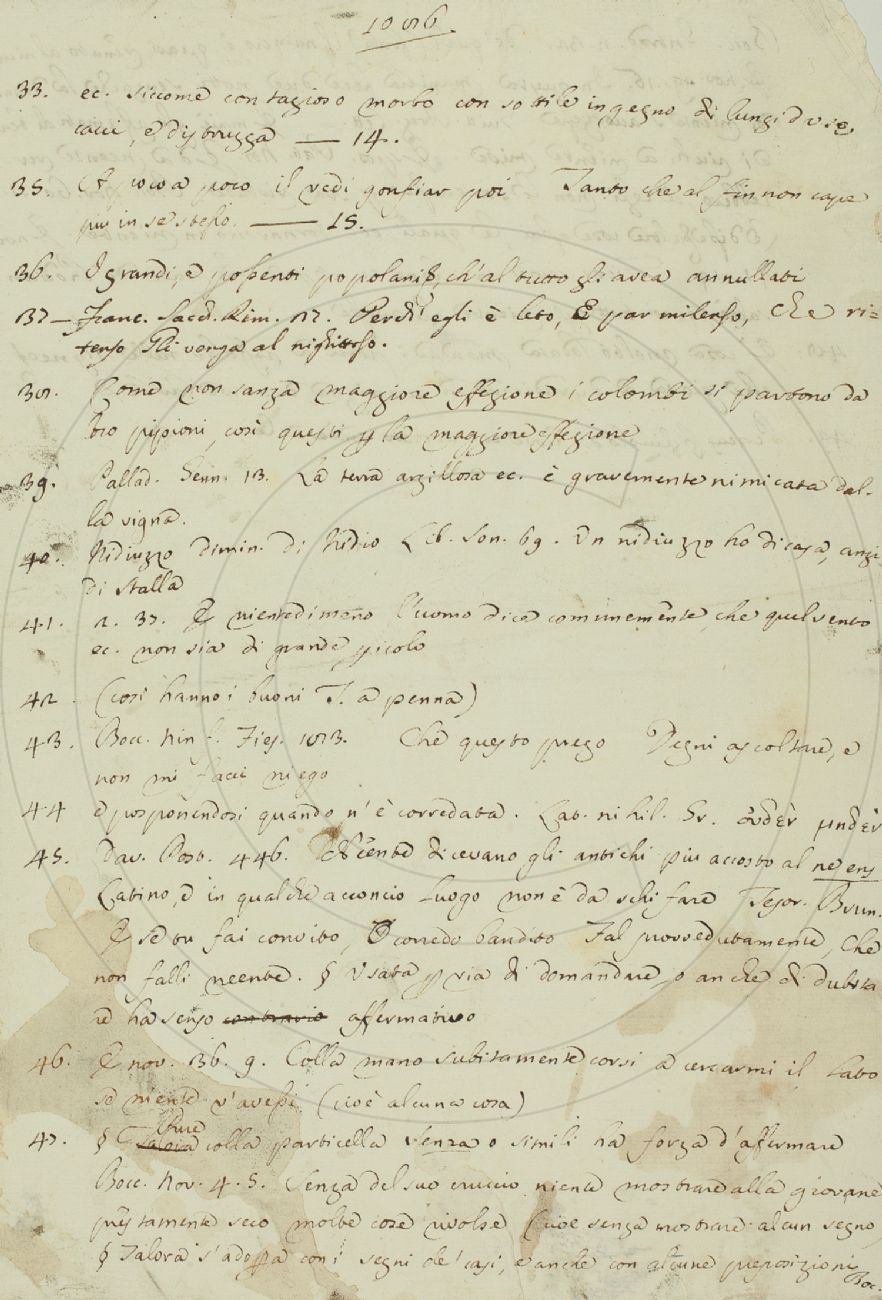 1086.
33. ec. siccome contagioso morbo con sottile ingegno di lungi du se
cacci, e distrugga — 14.
35. A poco a poco il vedi gonfiar poi Tanto che al fin non cape
più in se stesso. — 15.
36. I grandi, e possenti popolani, ch'al tutto gli avea annullati
37 — Franc. Sacch. Rim. 17. Perch' egli è leto, E par milenso, Che ri=
tenso Gli venga al nighittoso.
38. Come non sanza maggiore affezione i colombi si partono da
loro pippioni, così questi p la maggiore affezione
39. Pallad. Genn. 13. La terra argillosa ec. è gravemente nimicata dal-
la vigna.
40. Nidiuzzo dimin. di Nidio Lib. Son. 69. Un nidiuzzo ho di casa, anzi
di stalla
41. 2. 37. E nientedimeno l'uomo dice comunemente, che quel vento
ec. non sia di grande picolo
42. (così hanno i buoni T. a penna)
43. Bocc. Ninf. Fies. 183. Che questo prego Degni ascoltare, e
non mi facci niego
44 e posponendosi quando n'è corredata. Lat. nihil. Gr. οὐδὲν μηδὲν
45. Dav. Post. 446. Neente dicevano gli antichi più accosto al ne ens
Latino, e in qualche acconcio luogo non è da schifare Tesor. Brun.
E se tu fai convito, O corredo bandito Fal provvedutamente, Che
non falli neente. § Usata p via di domandare, o anche di dubita
re ha senso contrario affermativo
46. E nov. 36. 9. Colla mano subitamente corsi a cercarmi il lato
se niente v'avessi (cioè alcuna cosa)
47. § Talora colla particella senza o simili ha forza d'affermare
Bocc. Nov. 4. 5. Senza del suo cruccio niente mostrare alla giovane
prestamente seco molte cose rivolse (cioè senza mostrare alcun segno,
§ Talora s'adopra con i segni de' casi, e anche con alcune preposizioni
Boc.